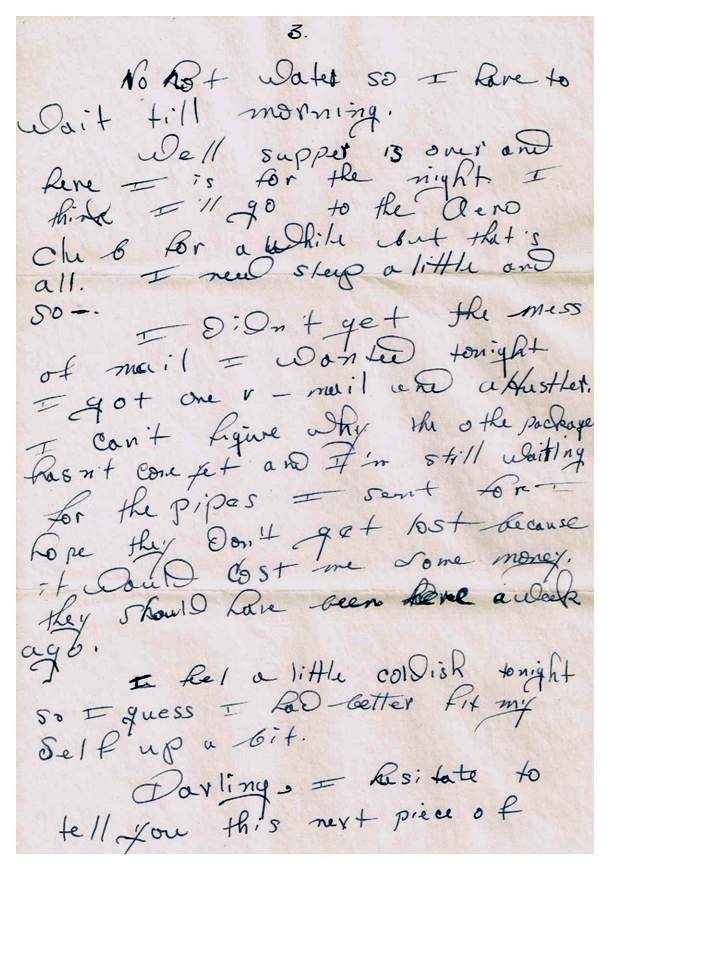 3.
No hot water so I have to
wait till morning.
Well supper is over and
here I is for the night. I
think I'll go to the Aero
Club for a while but that's
all. I need sleep a little and
so—.
I didn't get the mess
of mail I wanted tonight
I got one v-mail and a Hustler.
I can't figure why the othe package
hasn't come yet and I'm still waiting
for the pipes I sent for I
hope they don't get lost because
it would cost me some money.
they should have been here a week
ago.
I feel a little coldish tonight
so I guess I had better fix my
self up a bit.
Darling, I hesitate to
tell you this next piece of